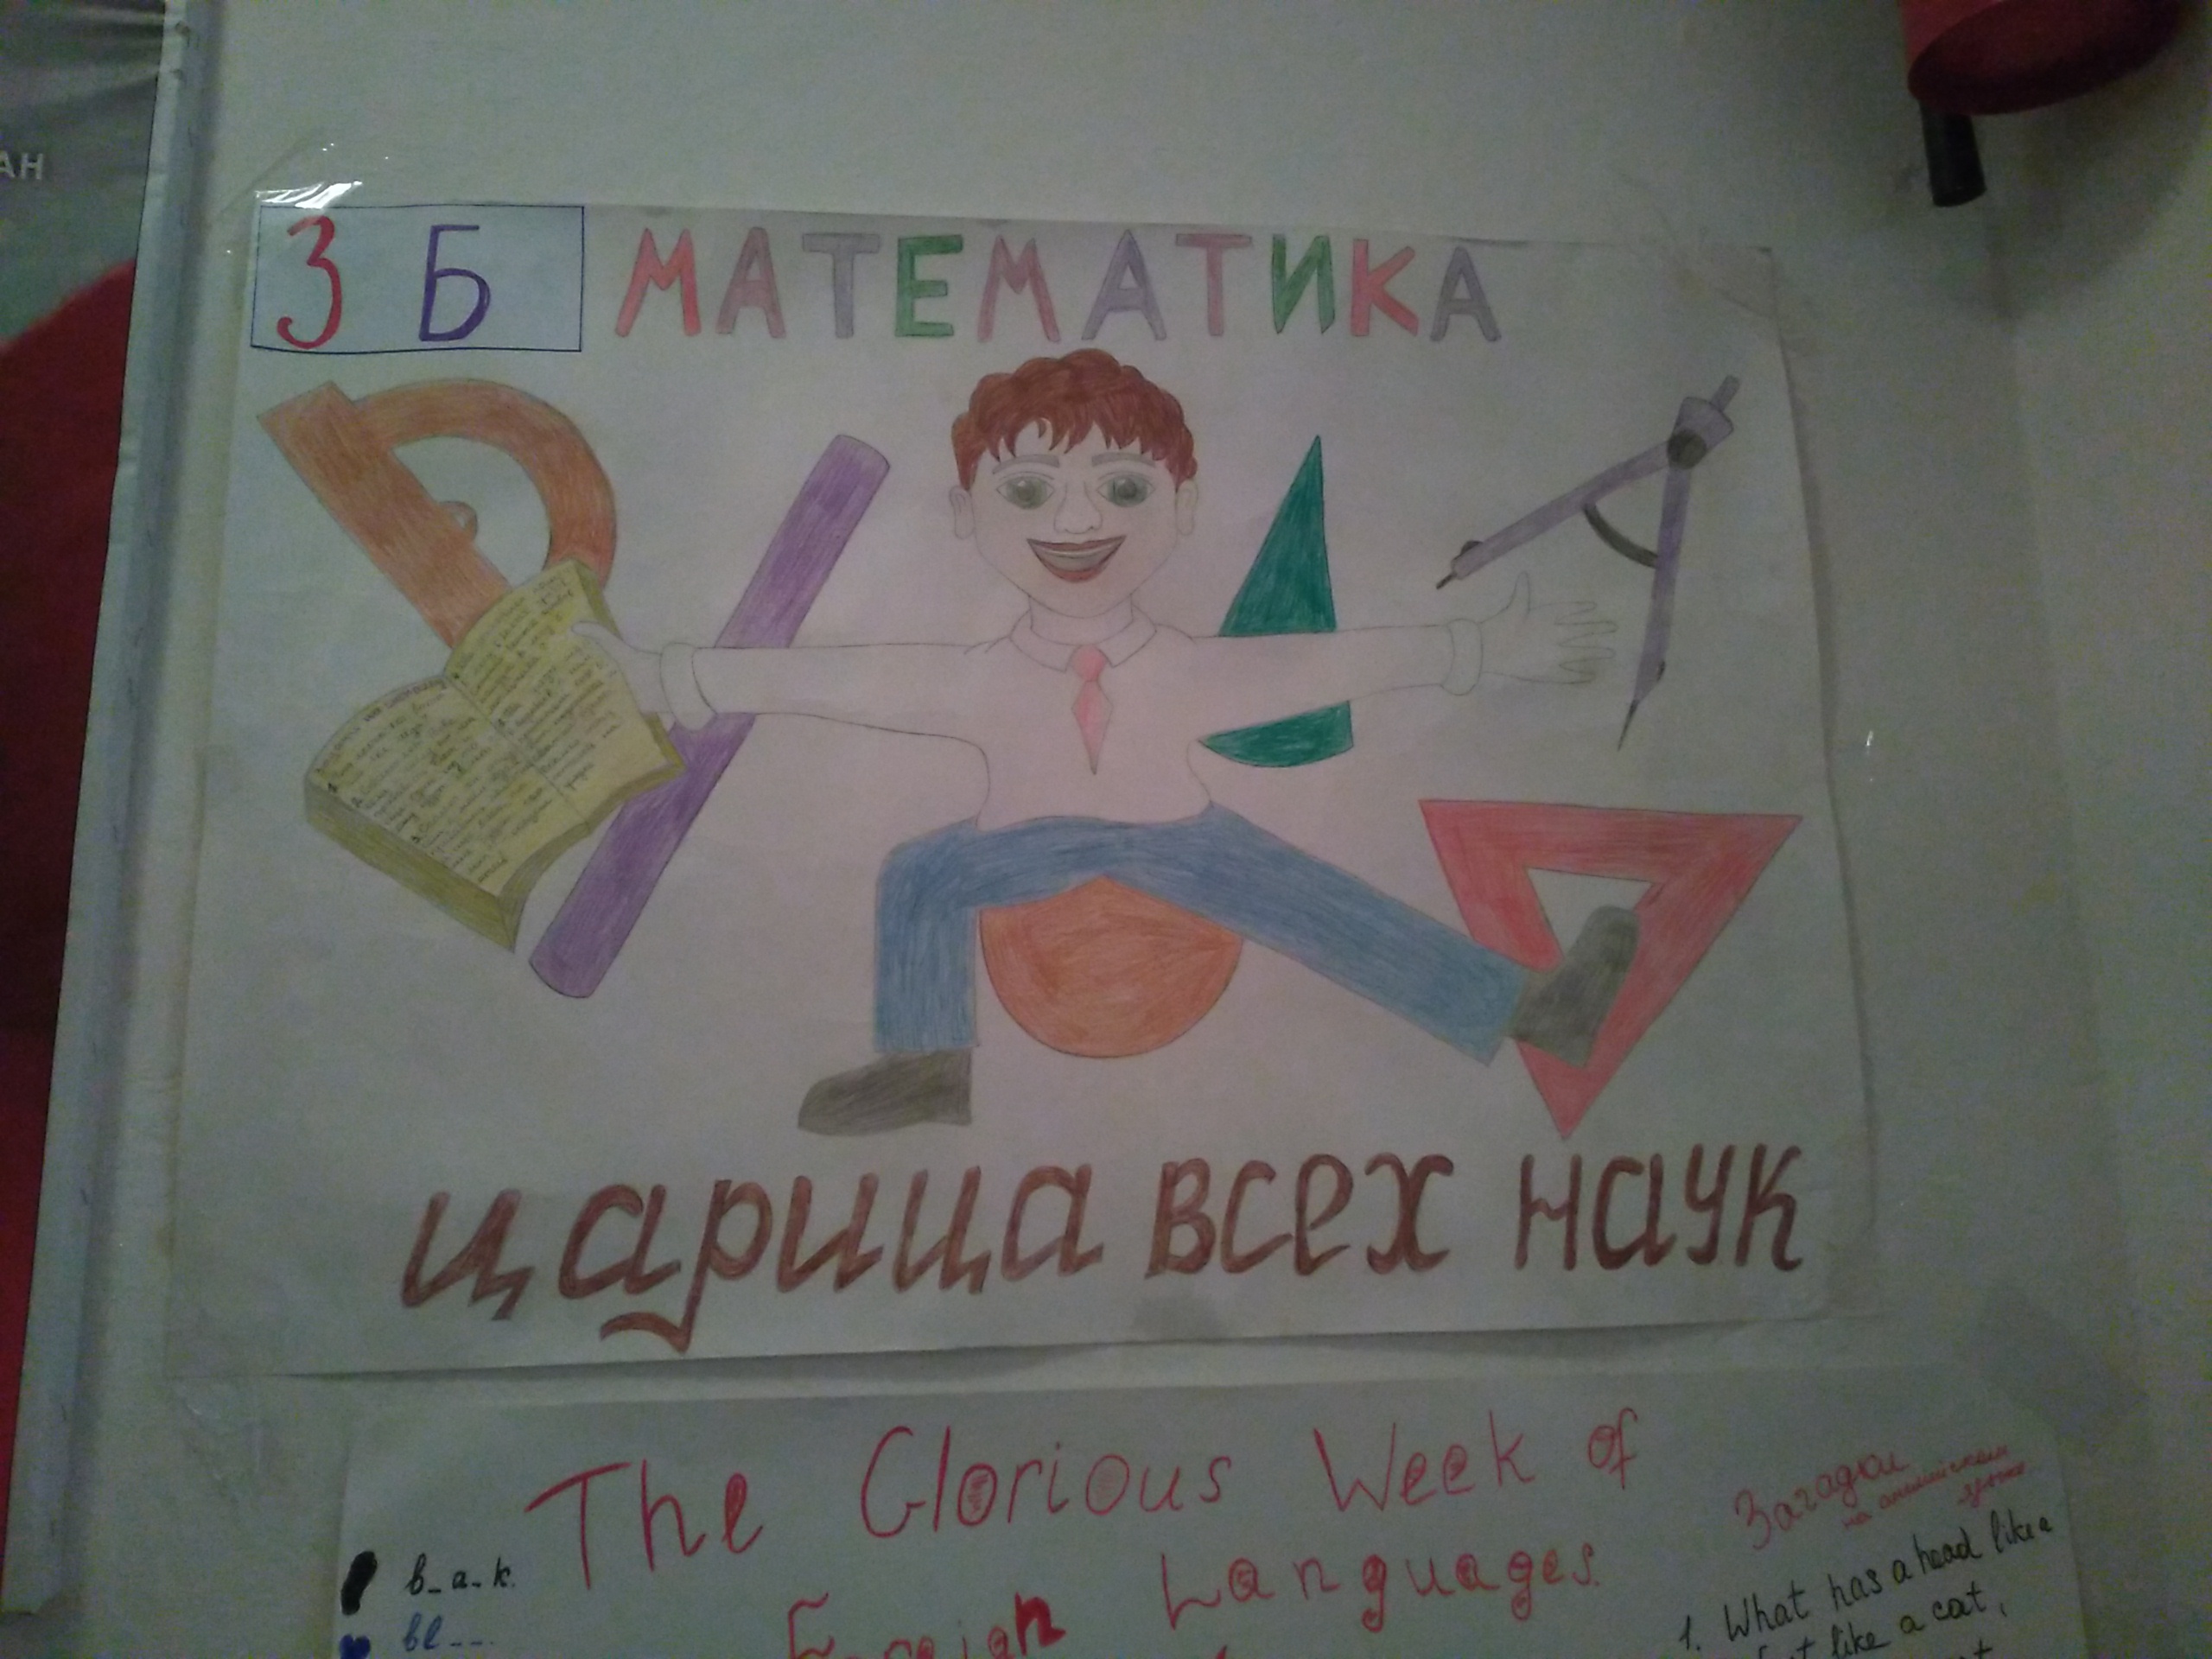 АН
3 Б МАТЕМАТИКА
царица всех наук
The Glorious Week of
Foreign Languages.
Загадки
на английском
языке
b_a_k.
bl___.
1. What has a head like a
like a cat,